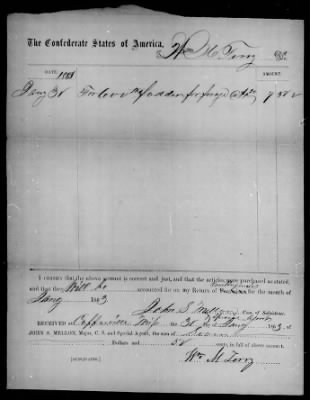 The Confederate States of America, Wm M Terry Dr.
DATE.
1863
Jany 31 For fodder for forage 7 50
I CERTIFY that the above account is correct and just, and that the articles were purchased as stated,
and they will be accounted for on my Return of for the month of
Jany 1863
John S Mellon
RECEIVED at Coffeeville Miss 31 Jany 1863, of
JOHN S. MELLON, Major, C. S. and Special Agent, the sum of Seven
Dollars and 50 cents, in full of above account.
Wm M Terry
[DUPLICATE.]